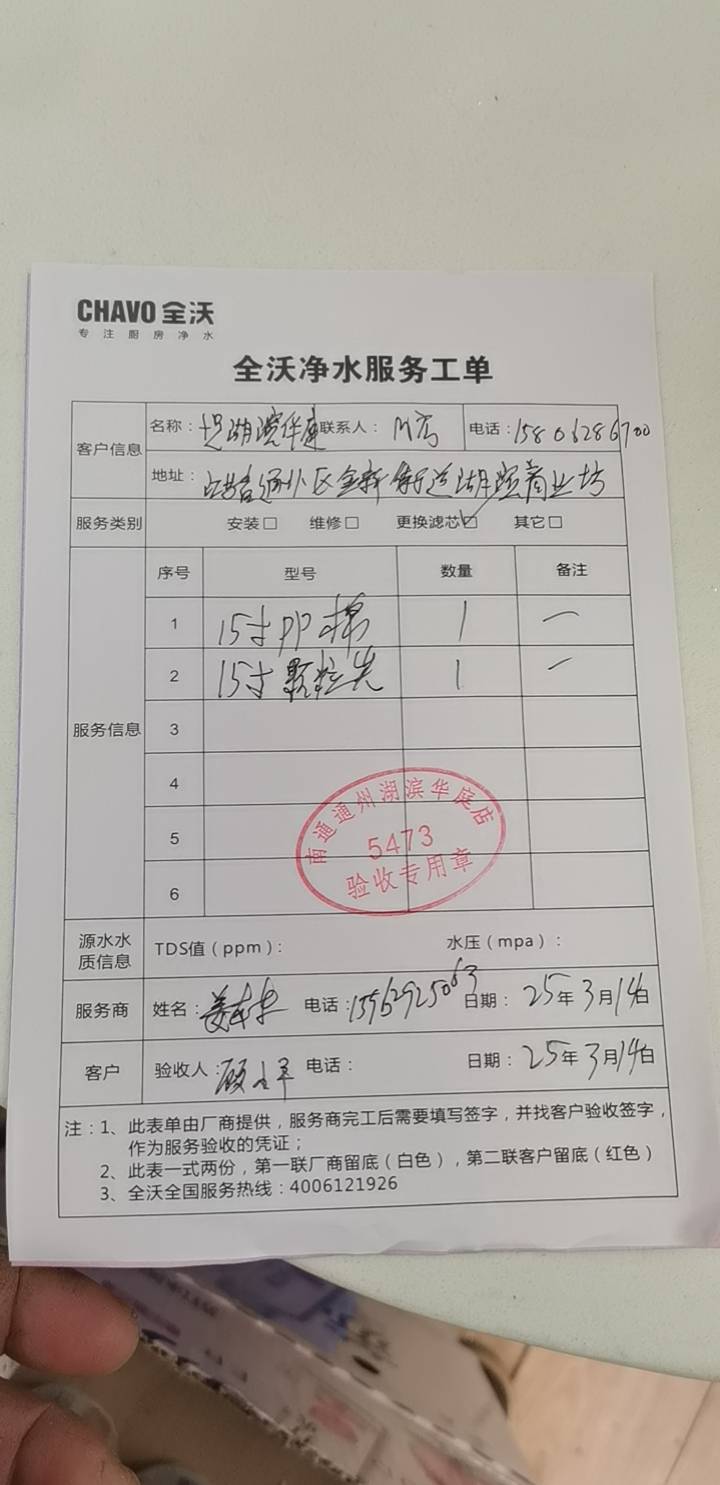 CHAVO 全沃
专注厨房净水
全沃净水服务工单
客户信息
名称：湖滨华庭 联系人： 电话：15806286700
地址：通州区金新街道湖滨商业坊
服务类别 安装□ 维修□ 更换滤芯☑ 其它□
服务信息
序号 型号 数量 备注
1 15寸PP棉 1 一
2 15寸颗粒炭 1 一
3
4
5
6
南通通州湖滨华庭店
5473
验收专用章
源水水质信息 TDS值（ppm）： 水压（mpa）：
服务商 姓名： 电话：13962925063 日期：25年3月14日
客户 验收人： 电话： 日期：25年3月14日
注：1、此表单由厂商提供，服务商完工后需要填写签字，并找客户验收签字，
作为服务验收的凭证；
2、此表一式两份，第一联厂商留底（白色），第二联客户留底（红色）
3、全沃全国服务热线：4006121926